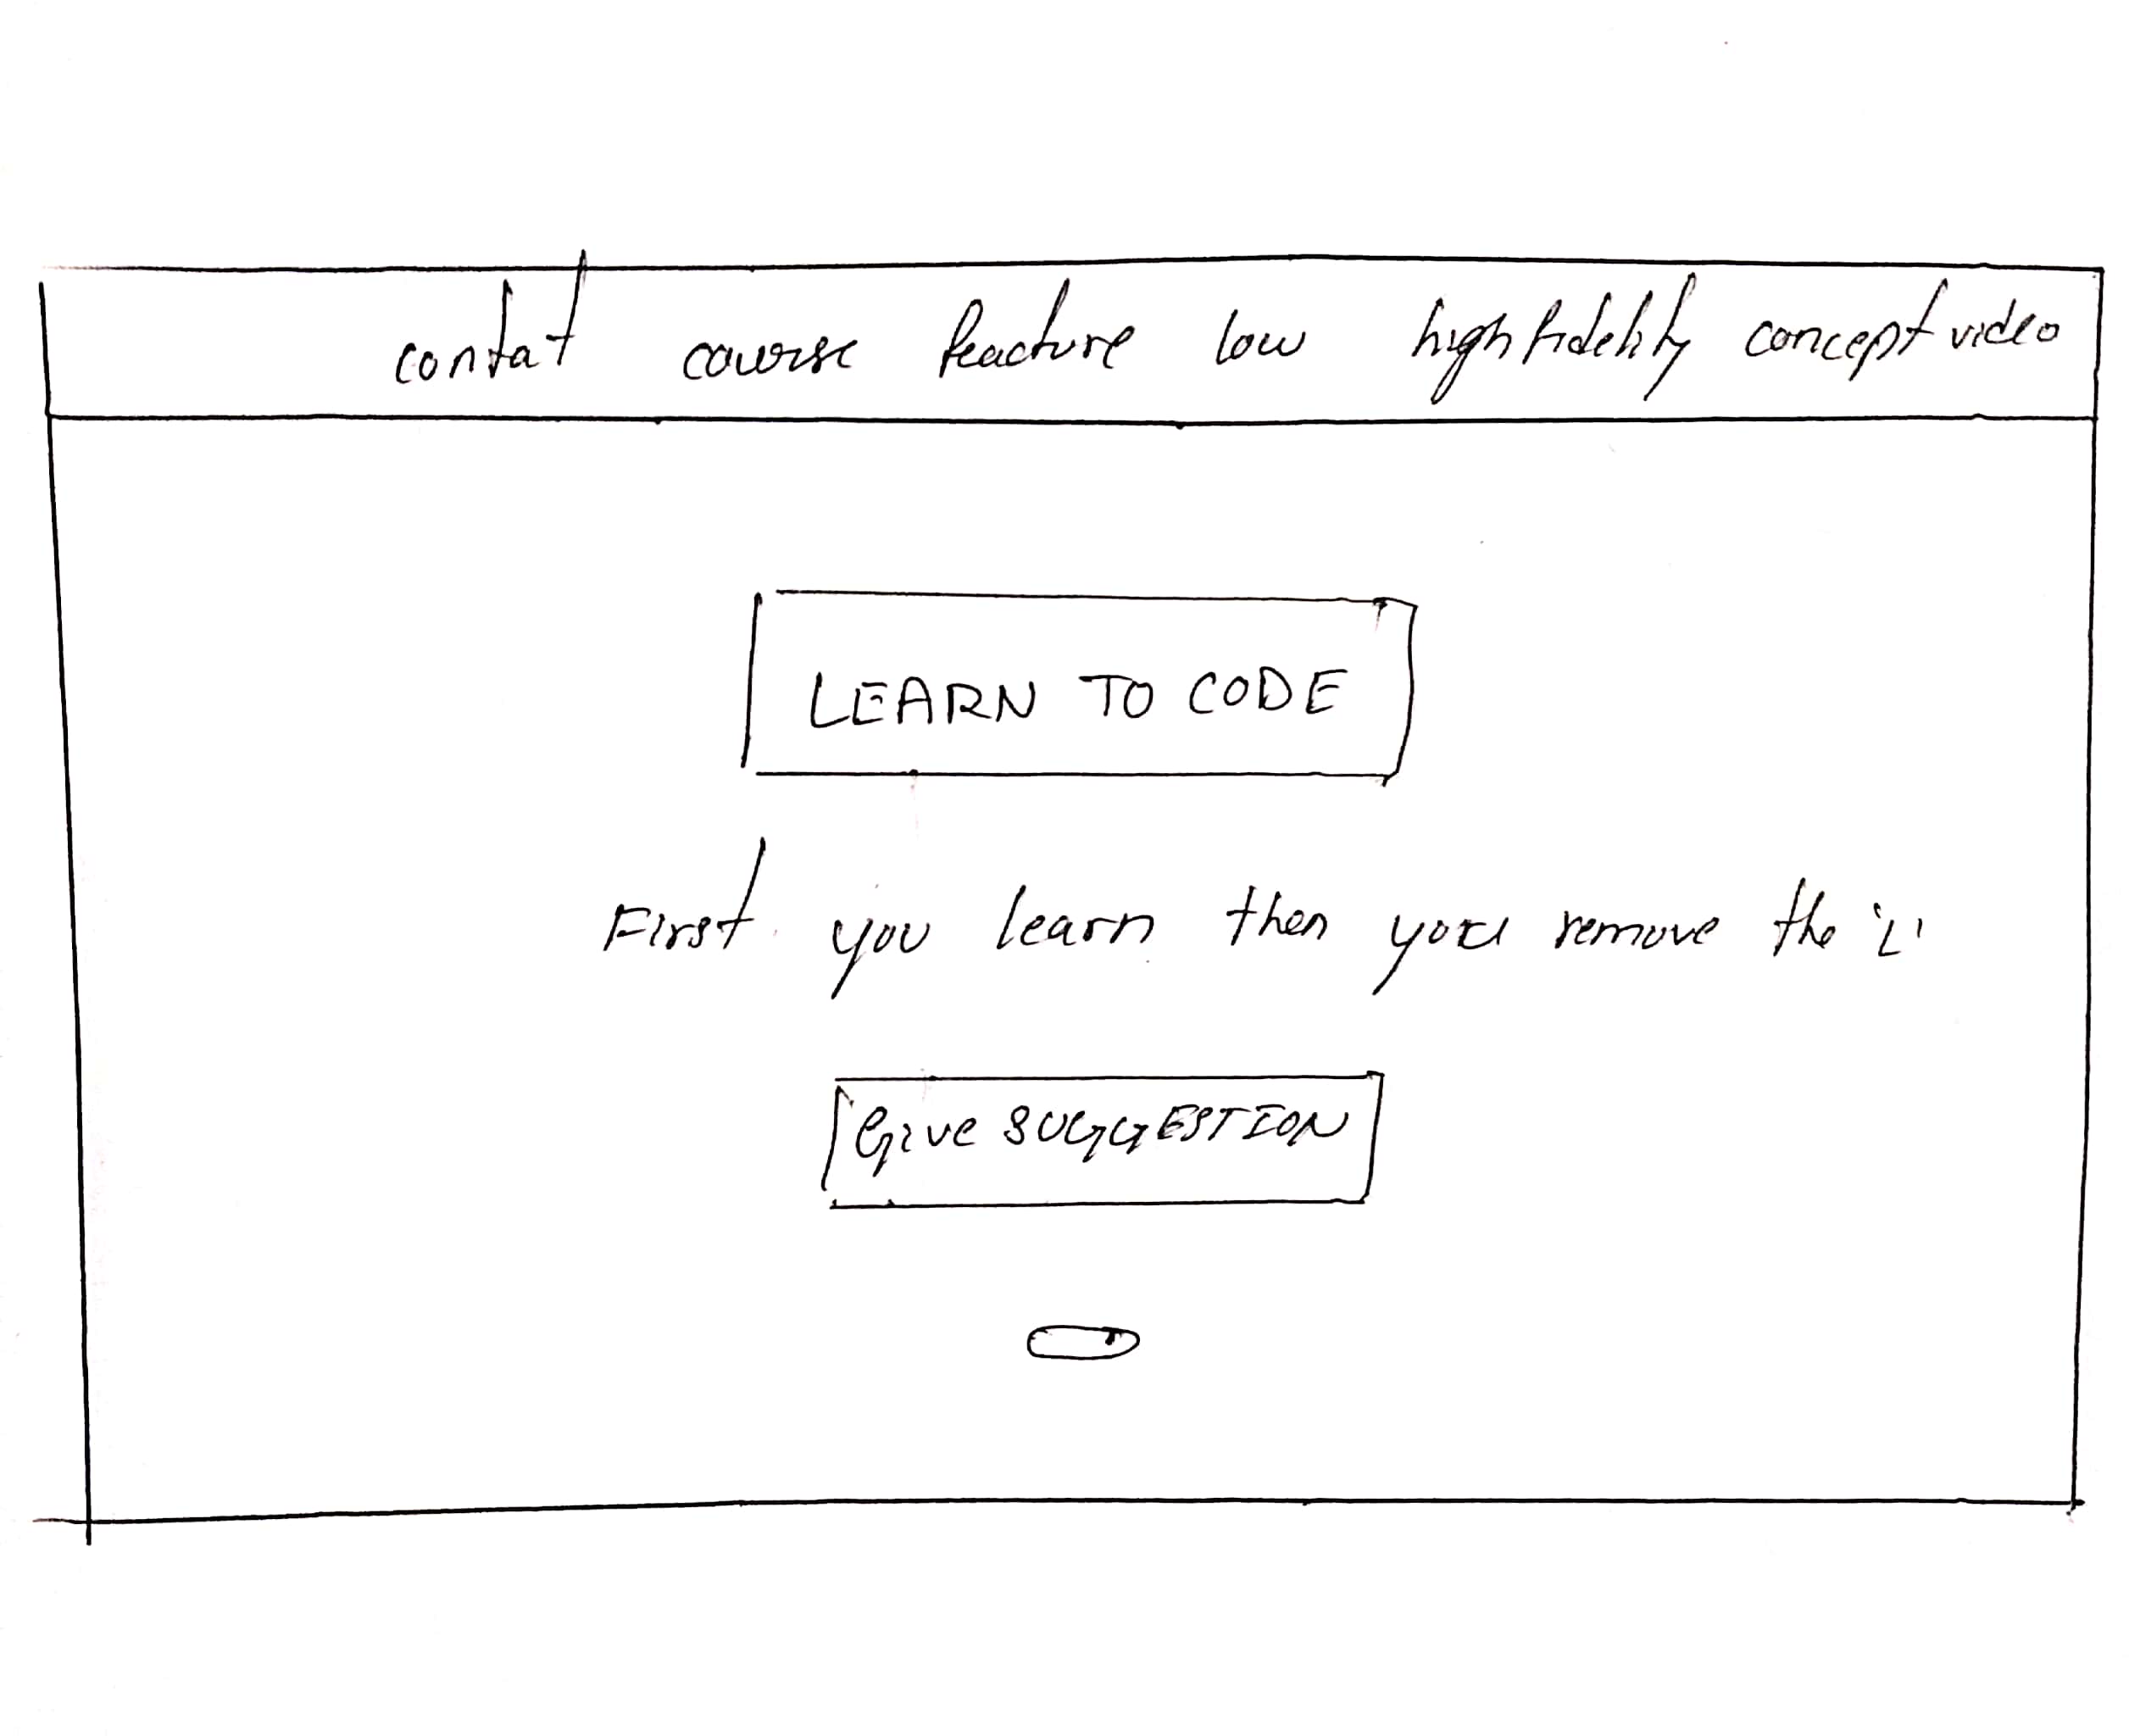 contat course feacture low high fidelity concept video
LEARN TO CODE
First you learn then you remove the 'L'
Give SUGGESTION